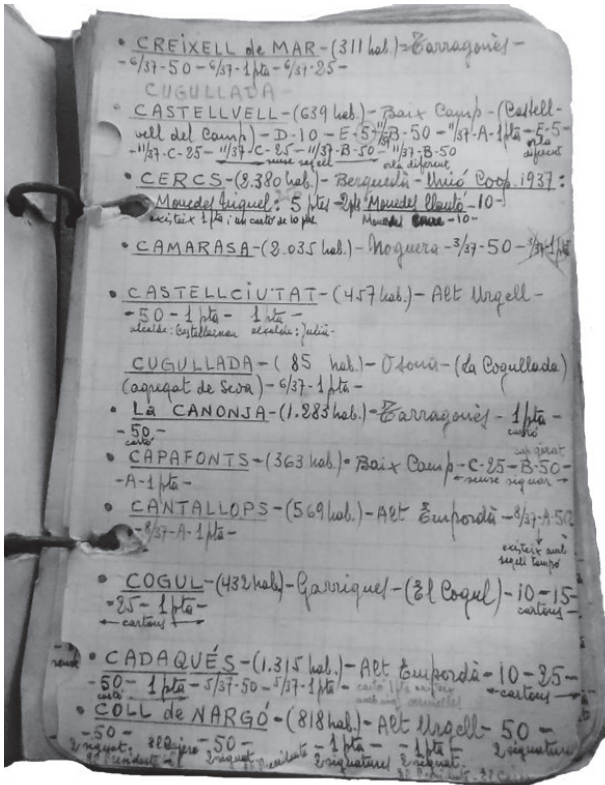 • CREIXELL de MAR-(311 hab.)-Tarragonès-
-6/37-50-6/37-1 pta-6/37-25-
CUGULLADA-
• CASTELLVELL-(639 hab.)-Baix Camp-(Castell-
vell del Camp)-D-10-E-5-11/37-B-50-11/37-A-1 pta-E-5-
-11/37-C-25-11/37-C-25-11/37-B-50-11/37-B-50 orla diferent
sense segell orla diferent
• CERCS-(2.380 hab.)-Berguedà-Unió Coop. 1937:
Mercedes Miquel: 5 ptes-2 pts 10-
existeix 1 pta
• CAMARASA-(2.035 hab.)-Noguera-3/37-50-3/37-1 pta
• CASTELLCIUTAT-(457 hab.)-Alt Urgell-
-50-1 pta- 1 pta-
alcalde: alcalde: Julià-
CUGULLADA-(85 hab.)-Osona-(La Cogullada)
(agregat de Seva)-6/37-1 pta-
• La CANONJA-(1.283 hab.)-Tarragonès-1 pta-
-50- cartró
cartó
• CAPAFONTS-(363 hab.)-Baix Camp-C-25-B-50-
-A-1 pta- sense signar
• CANTALLOPS-(569 hab.)-Alt Empordà-8/37-A-50
-8/37-A-1 pta-
existeix amb
segell tampó
• COGUL-(432 hab)-Garrigues-(El Cogul)-10-15-
-25-1 pta- cartons
cartons
• CADAQUÉS-(1.315 hab.)-Alt Empordà-10-25-
-50-1 pta-5/37-50-5/37-1 pta- cartons
• COLL de NARGÓ-(818 hab)-Alt Urgell-50-
-50- -50- -1 pta- -1 pta- 2 signatures
2 signat. 2 signat. 2 signatures 2 signat.